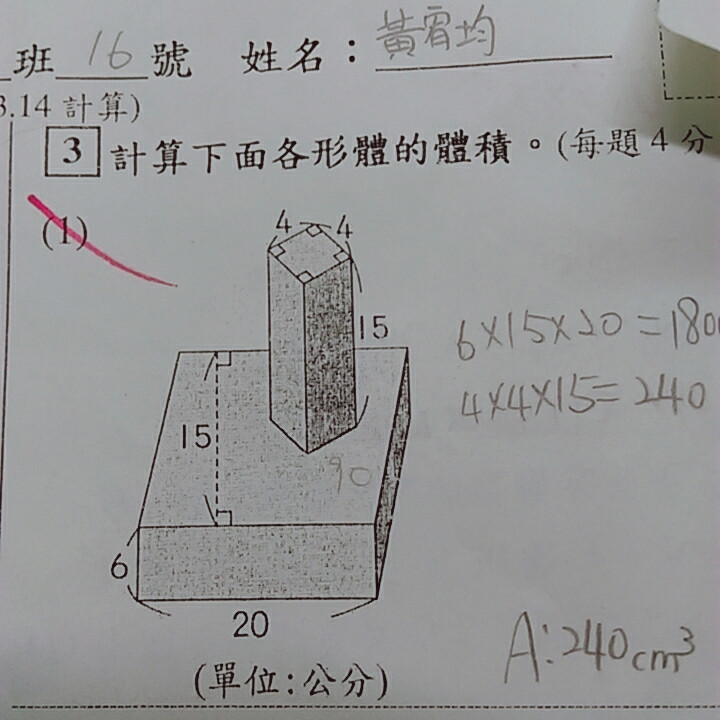 班 16 號 姓名：黃宥均
3.14 計算)
3 計算下面各形體的體積。(每題 4 分
(1)
4 4
15
6×15×20=1800
4×4×15=240
15
90
6
20
A:240cm³
(單位:公分)